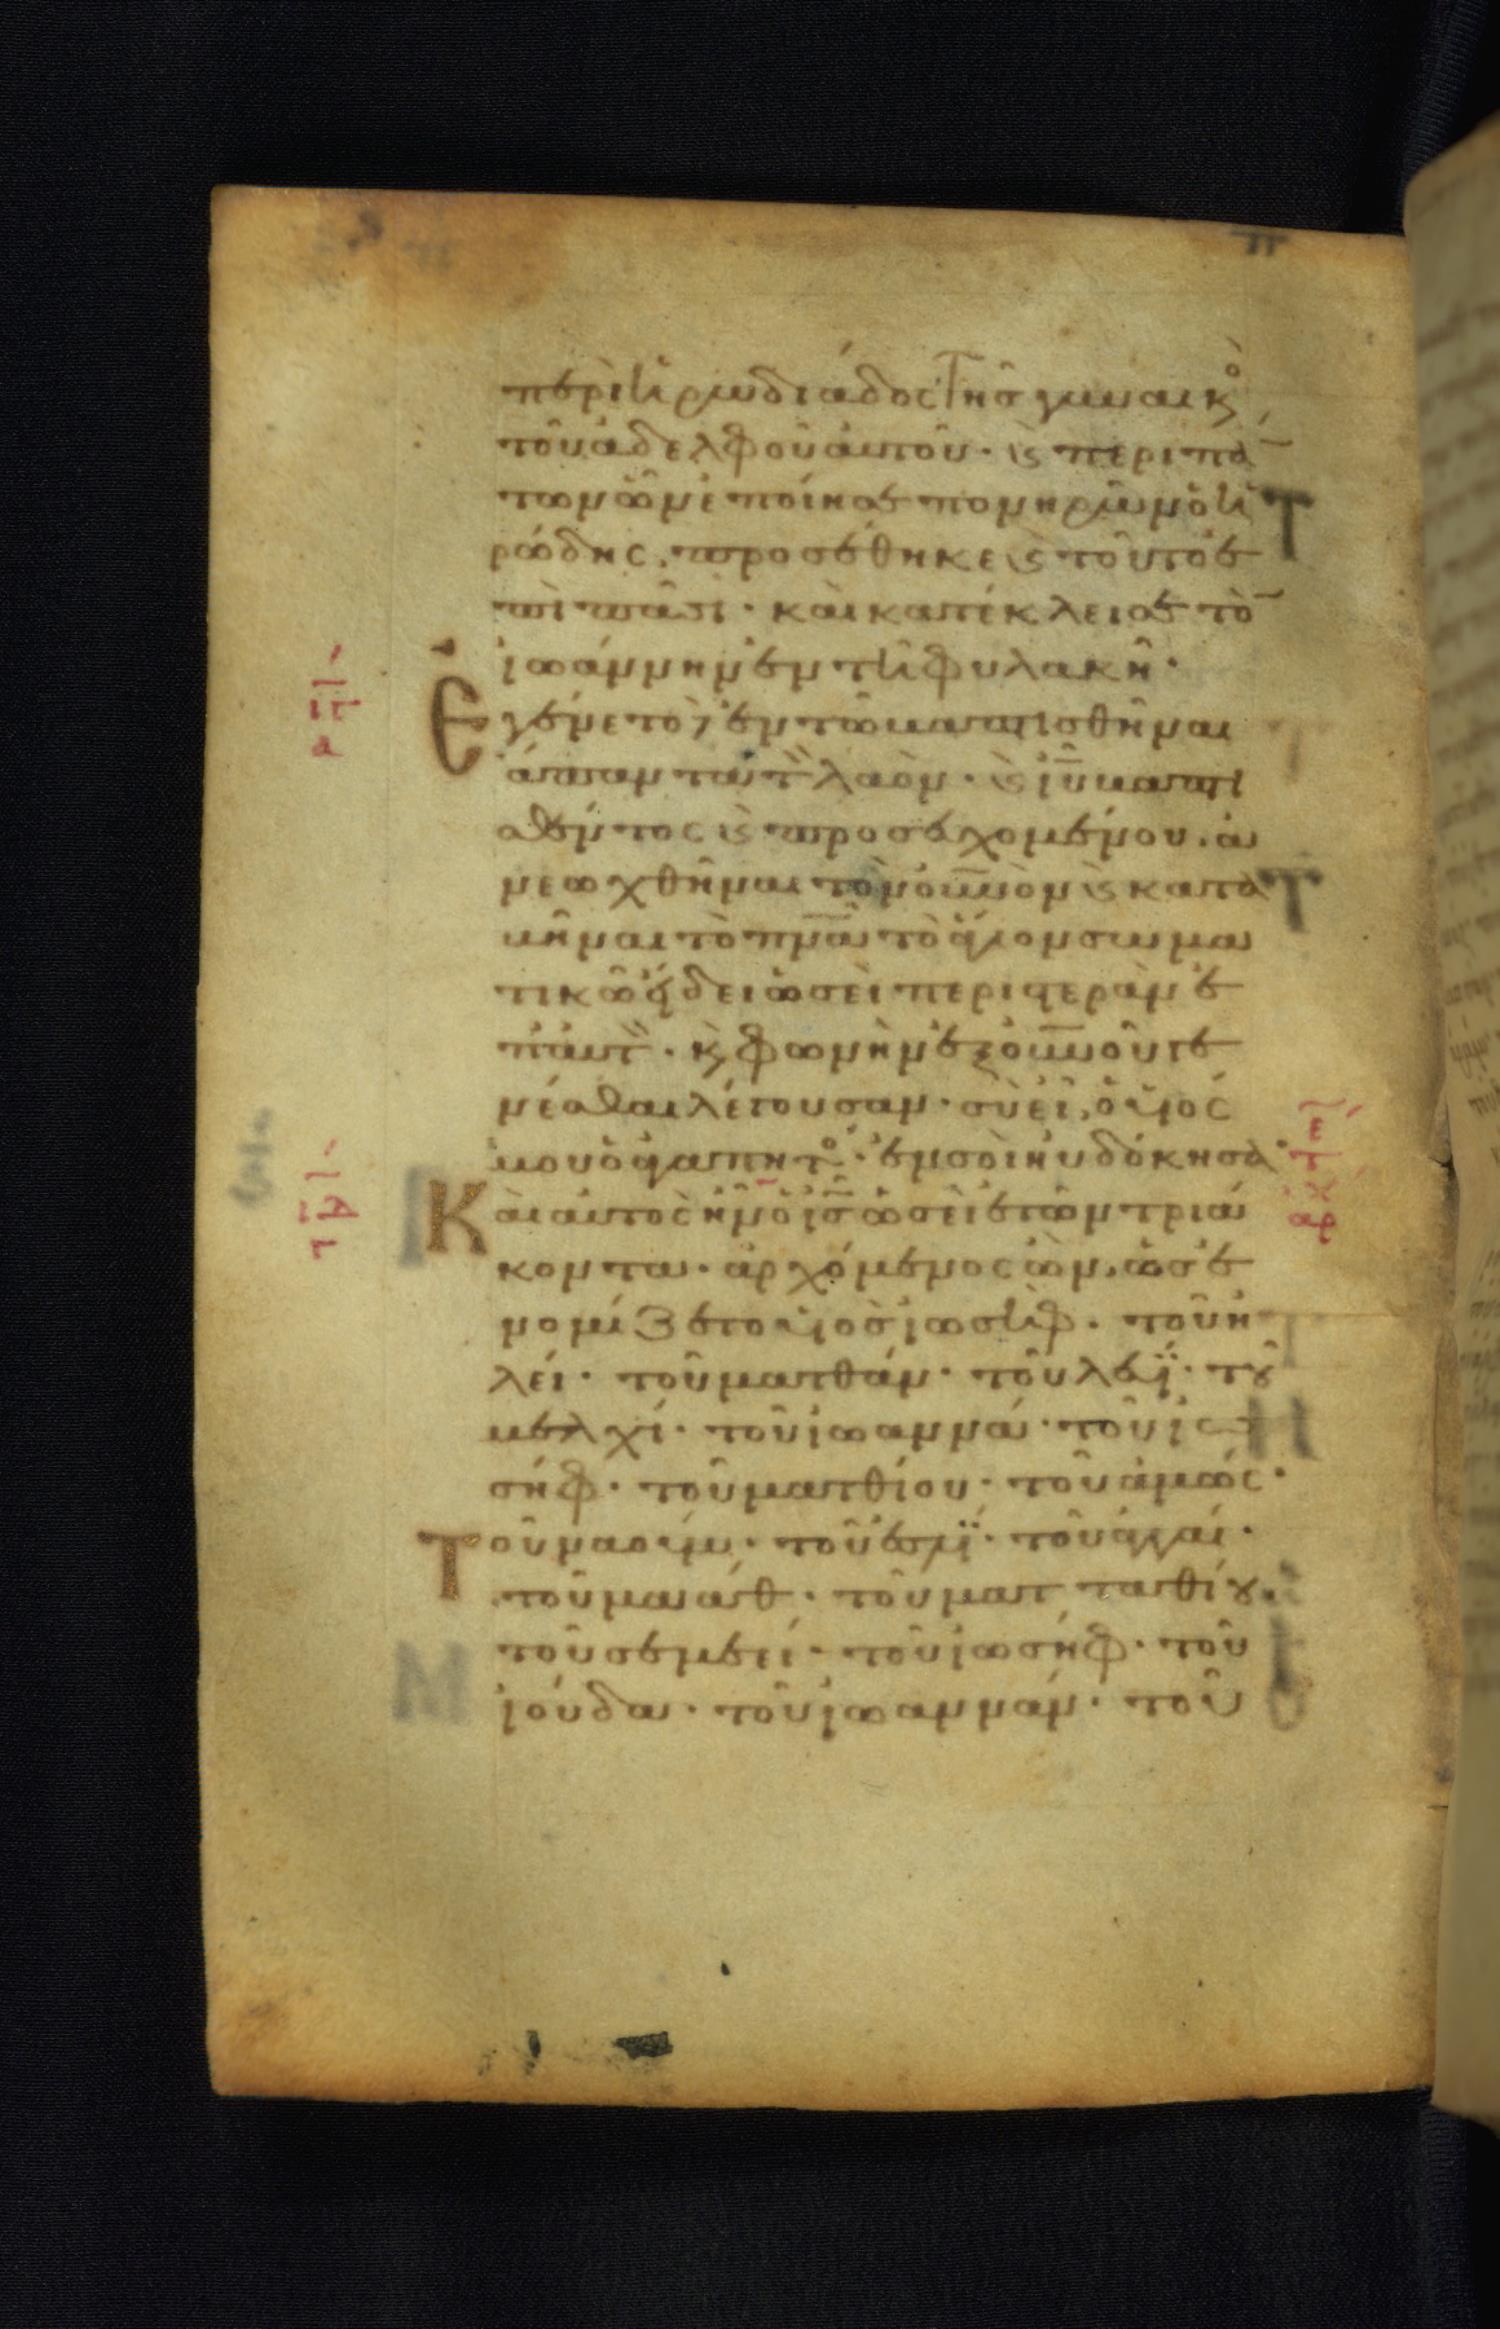 περὶ ἡρωδιάδος τῆς γυναικὸ
τοῦ ἀδελφοῦ αὐτοῦ· κ περὶ πά
των ὧν ἐποίησε πονηρῶν ὁ ἡ
ρώδης, προσέθηκε κ τοῦτο ἐ
πὶ πᾶσι· καὶ κατέκλεισε τὸ
ἰωάννην ἐν τῆ φυλακῆ·
Ἐγένετο ἐν τῶ βαπτισθῆναι
ἅπαντα τὸν λαὸν· κ ἰῦ βαπτι
σθέντος κ προσευχομένου. ἀ
νεωχθῆναι τὸν οὐνὸν κ κατα
βῆναι τὸ πνᾶ τὸ ἅγιον σωμα
τικῶ εἴδει ὡσεὶ περιστερὰν ἐ
π' αὐτ· κ φωνὴν ἐξ οὐνοῦ γε
νέσθαι λέγουσαν· σὺ εἶ ὁ υἱός
μου ὁ ἀγαπητὸ· ἐν σοὶ ηὐδόκησα
Καὶ αὐτὸς ἦν ὁ ἰς ὡσεὶ ἐτῶν τριά
κοντα· ἀρχόμενος ὢν, ὡς ἐ
νομίζετο υἱὸς ἰωσὴφ· τοῦ ἡ
λεί· τοῦ ματθάν· τοῦ λευΐ· τοῦ
μελχί· τοῦ ἰωαννά· τοῦ ἰω
σήφ· τοῦ ματθίου· τοῦ ἀμώς·
Τοῦ ναούμ· τοῦ ἐσλΐ· τοῦ ἀγγαί·
τοῦ μαάθ· τοῦ ματταθίου.
τοῦ σεμεεί· τοῦ ἰωσήφ· τοῦ
ἰούδα· τοῦ ἰωαννάν· τοῦ